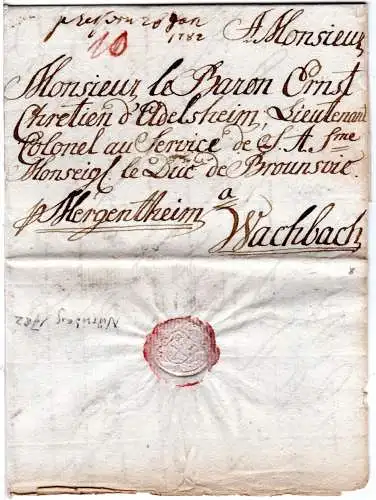 20 Jan
1782
A Monsieur
10
Monsieur le Baron Ernst
Chretien d'Edelsheim, Lieutenant
Colonel au Service de S. A. Sme
Monseigl. le Duc de Brounsvic.
a
p Mergentheim
Wachbach
8
Nürnberg 1782